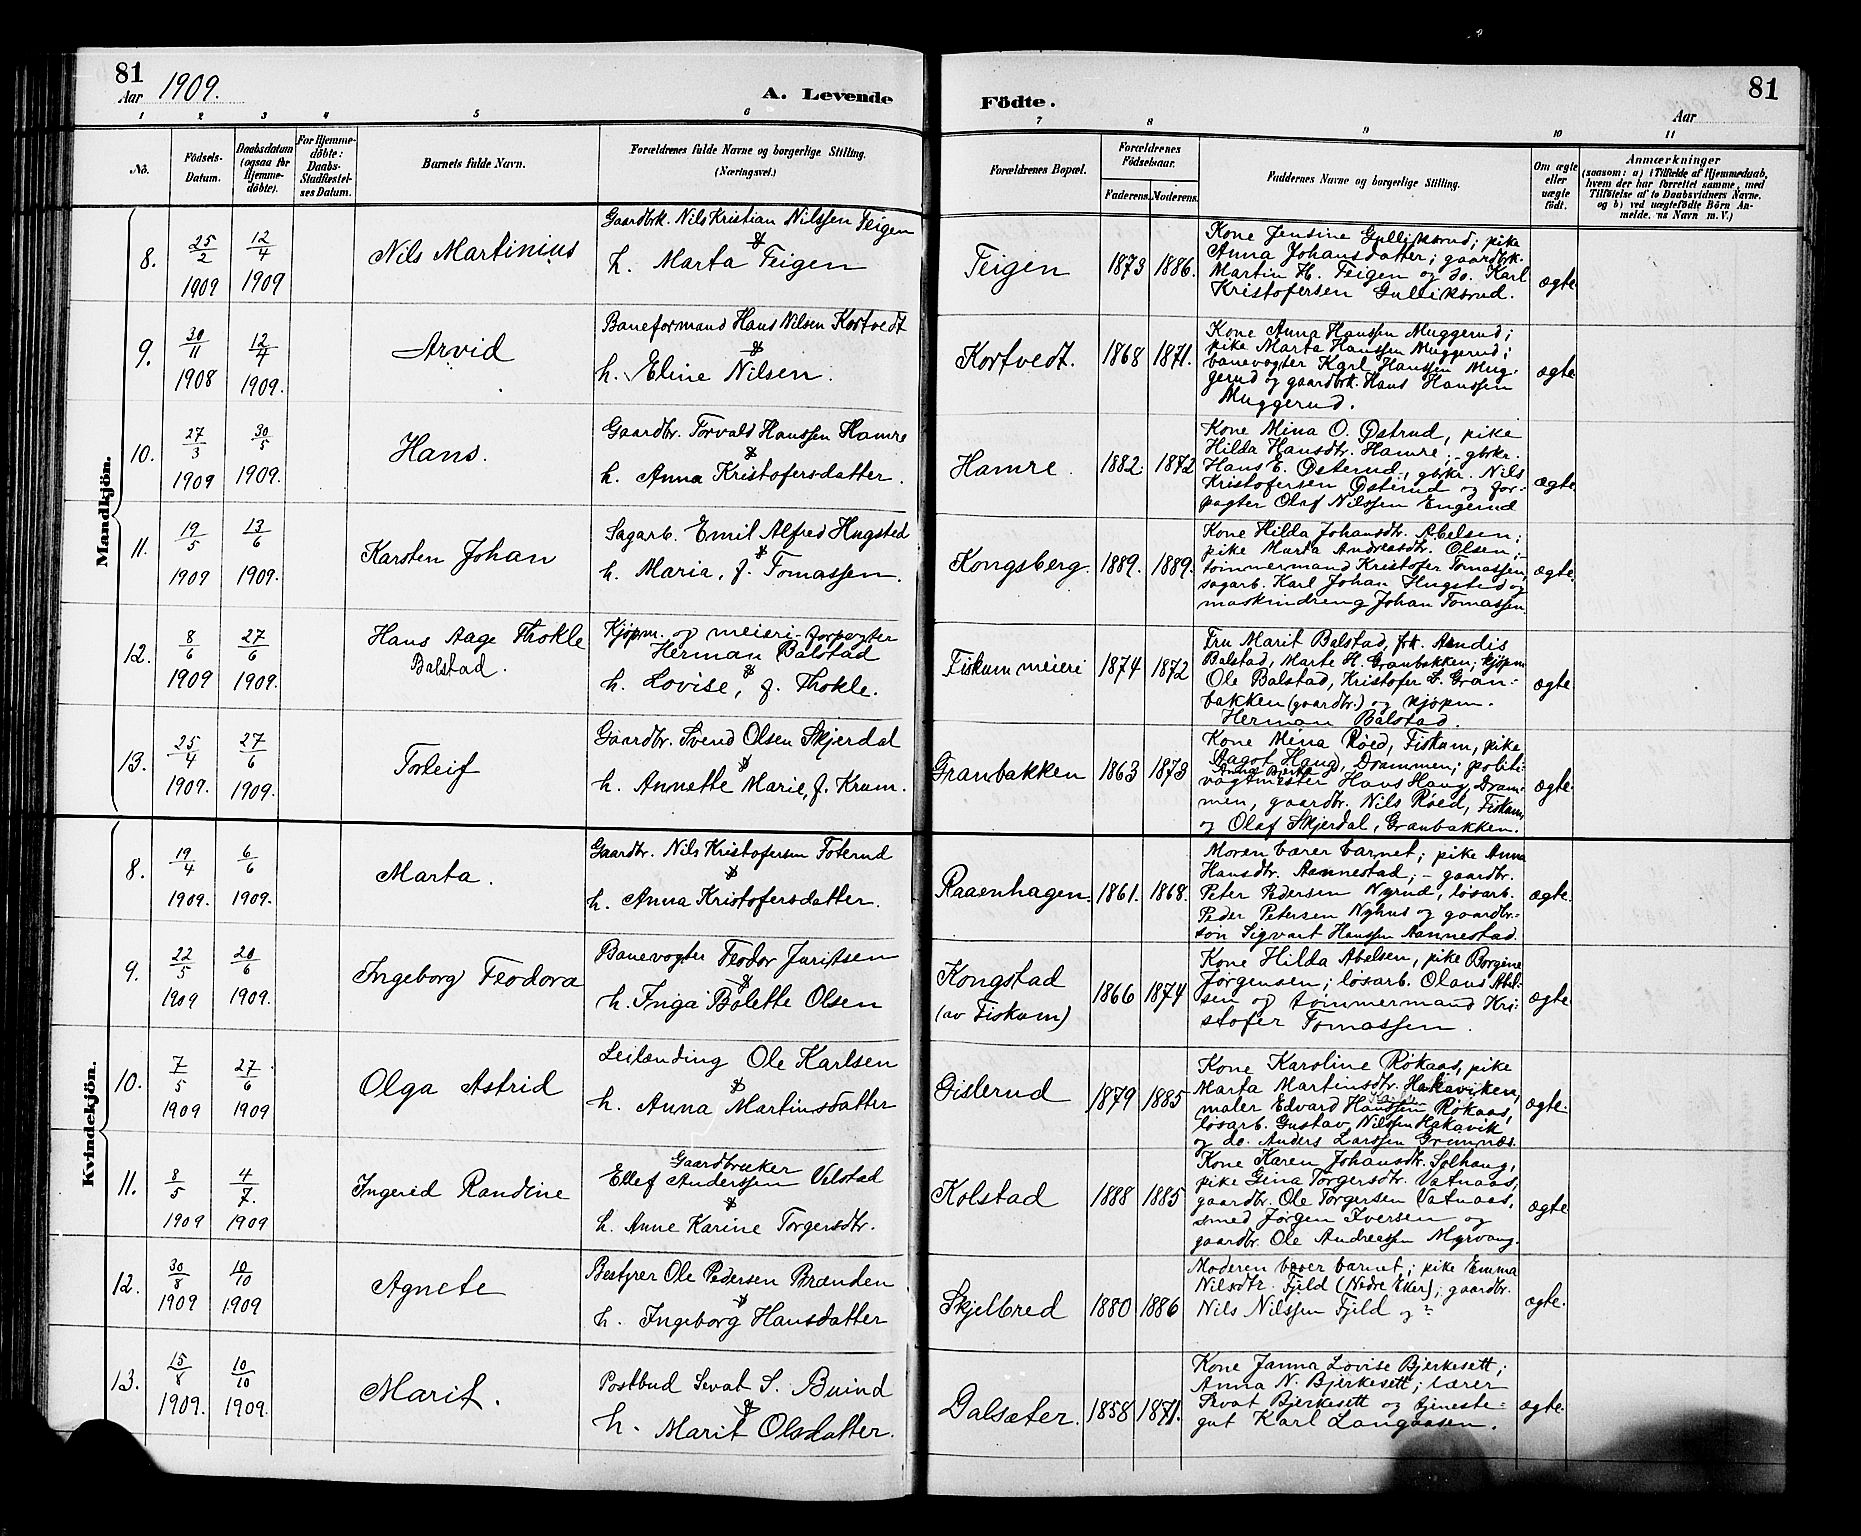 81
Aar 1909.
A. Levende
Födte.
Aar
81
1
2
3
4
5
6
7
8
9
10
11
No.
Födsels-
Datum.
Daabsdatum
(ogsaa for
Hjemme-
döbte).
For Hjemme-
döbte:
Daabs-
Stadfæstel-
ses Datum.
Barnets fulde Navn.
Forældrenes fulde Navne og borgerlige Stilling.
(Næringsvei.)
Forældrenes Bopæl.
Forældrenes
Födselsaar.
Faderens.
Moderens.
Faddernes Navne og borgerlige Stilling.
Om ægte
eller
uægte
födt.
Anmærkninger
(saasom: a) i Tilfælde af Hjemmedaab,
hvem der har forrettet samme, med
Tilföielse af to Daabsvidners Navne.
og b) ved uægtefödte Börn An-
melde.ns Navn m. V.)
Mandkjön.
8.
25/2
1909
12/4
1909
Nils Martinius
Gaardbrk. Nils Kristian Nilssen Teigen
&
h. Marta Teigen
Teigen
1873
1886.
Kone Jensine Gulliksrud; pike
Anna Johansdatter; gaardbrk.
Martin H. Teigen og do. Karl
Kristofersen Gulliksrud.
ægte
9.
30/11
1908
12/4
1909.
Arvid
Baneformand Hans Nilsen Kortvedt
&
h. Eline Nilsen.
Kortvedt.
1868
1871.
Kone Anna Hanssen Muggerud;
pike Marta Hanssen Muggerud;
banevogter Karl Hanssen Mug-
gerud og gaardbrk. Hans Hanssen
Muggerud.
ægte
10.
27/3
1909
30/5
1909.
Hans.
Gaardbr. Torvald Hanssen Hamre
&
h. Anna Kristofersdatter.
Hamre.
1882.
1872
Kone Mina O. Østrud, pike
Hilda Hansdtr. Hamre; gbrkr.
Hans E. Østerud, gbrkr. Nils
Kristofersen Østerud og for-
pagter Olaf Nilssen Engerud
ægte
11.
19/5
1909
13/6
1909.
Karsten Johan
Sagarb. Emil Alfred Hugsted
&
h. Maria, f. Tomassen.
Kongsberg.
1889.
1889.
Kone Hilda Johansdtr. Abelsen;
pike Marta Andreasdtr. Olsen;
tømmermand Kristofer Tomassen,
sagarb. Karl Johan Hugsted og
maskindreng Johan Tomassen
ægte.
12.
8/6
1909
27/6
1909.
Hans Aage Thokle
Balstad.
Kjøpm. og meieri-forpagter
Herman Balstad
&
h. Lovise, f. Thokle.
Fiskum meieri
1874
1872
Fru Marit Balstad, frk. Aandis
Balstad, Marte H. Granbakken; kjøpm
Ole Balstad, Kristofer L. Gran-
bakken (gaardbr.) og kjøpm.
Herman Balstad.
ægte
13.
25/4
1909.
27/6
1909.
Torleif
Gaardbr. Svend Olsen Skjerdal
&
h. Annette Marie, f. Krum.
Granbakken
1863
1873
Kone Mina Røed, Fiskum, pike
Aagot Haug, Drammen; politi-
vagtmester Hans Haug, Dram-
men, gaardbr. Nils Røed, Fiskum
og Olaf Skjerdal, Granbakken.
ægte.
Kvindekjön.
8.
19/4
1909.
6/6
1909.
Marta.
Gaardbr. Nils Kristofersen Foterud
&
h. Anna Kristofersdatter.
Raaenhagen.
1861.
1868.
Moren bærer barnet; pike Anna
Hansdtr. Aannestad; – gaardbr.
Peter Pedersen Nyrud, løsarb.
Peder Petersen Nyhus og gaardbr.-
søn Sigvart Hanssen Aannestad.
ægte.
9.
22/5
1909
20/6
1909.
Ingeborg Feodora
Banevogter Feodor Juritsen
&
h. Inga Bolette Olsen
Kongstad
(av Fiskum)
1866
1874
Kone Hilda Abelsen, pike Borgine
Jørgensen; løsarb. Olaus Abel-
sen og tømmermand Kri-
stofer Tomassen.
ægte
10.
7/5
1909
27/6
1909
Olga Astrid
Leilænding Ole Karlsen
&
h. Anna Martinsdatter
Gislerud
1879
1885
Kone Karoline Røkaas, pike
Marta Martinsdtr. Hakaviken,
maler Edvard Hanssen Røkaas,
løsarb. Gustav Nilssen Hakavik
og do. Anders Larssen Grennæs.
ægte.
11.
8/5
1909
4/7.
1909
Ingerid Randine
Gaardbruker
Ellef Anderssen Velstad
&
h. Anne Karine Torgersdtr.
Kolstad
1888
1885
Kone Karen Johansdtr. Solhaug,
pike Gina Torgersdtr. Vatnaas,
gaardbr. Ole Torgersen Vatnaas,
smed Jørgen Iversen og
gaardbr. Ole Andreassen Myrvang.
ægte
12.
30/8
1909
10/10
1909
Agnete
Bestyrer Ole Pedersen Brænden
&
h. Ingeborg Hansdatter
Skjelbred
1880
1886
Moderen bærer barnet; pike Emma
Nilsdtr. Fjeld (Nedre Eker); gaardbr.
Nils Nilssen Fjeld og ?
ægte.
13.
15/8
1909.
10/10
1909.
Marit.
Postbud Sevat S. Buind
&
h. Marit Olsdatter.
Dalsæter.
1858
1871.
Kone Janna Lovise Bjerkesett;
Anna N. Bjerkesett; lærer
Sevat Bjerkesett og tjeneste-
gut Karl Langaasen.
ægte.